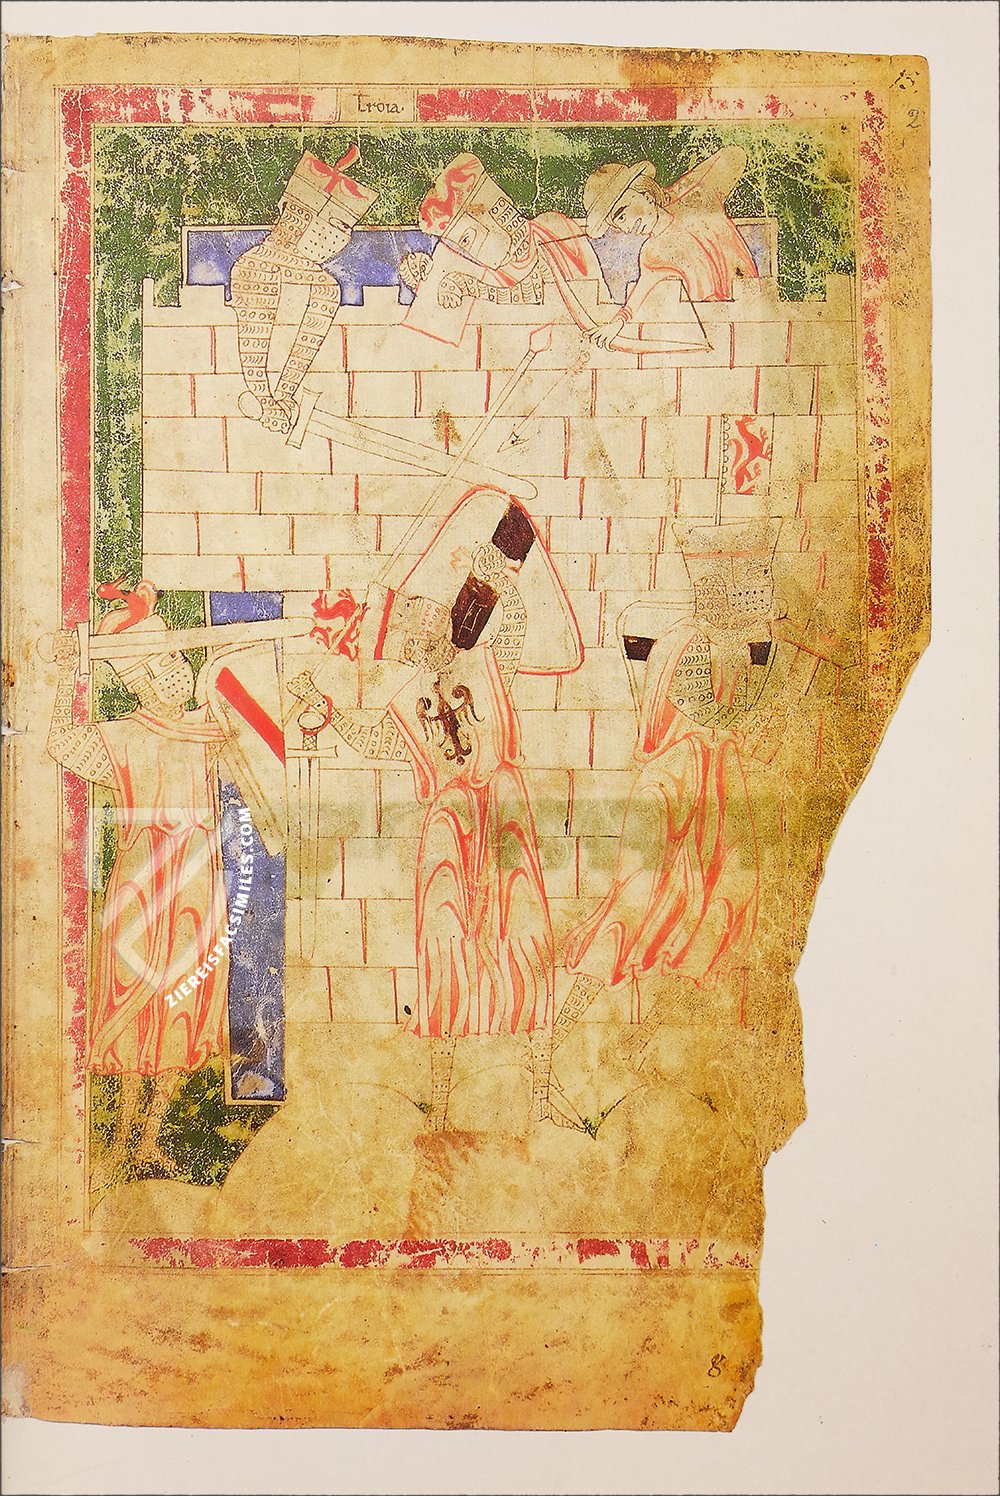 Troia.
15
2
ZIEREISFACSIMILES.COM
8